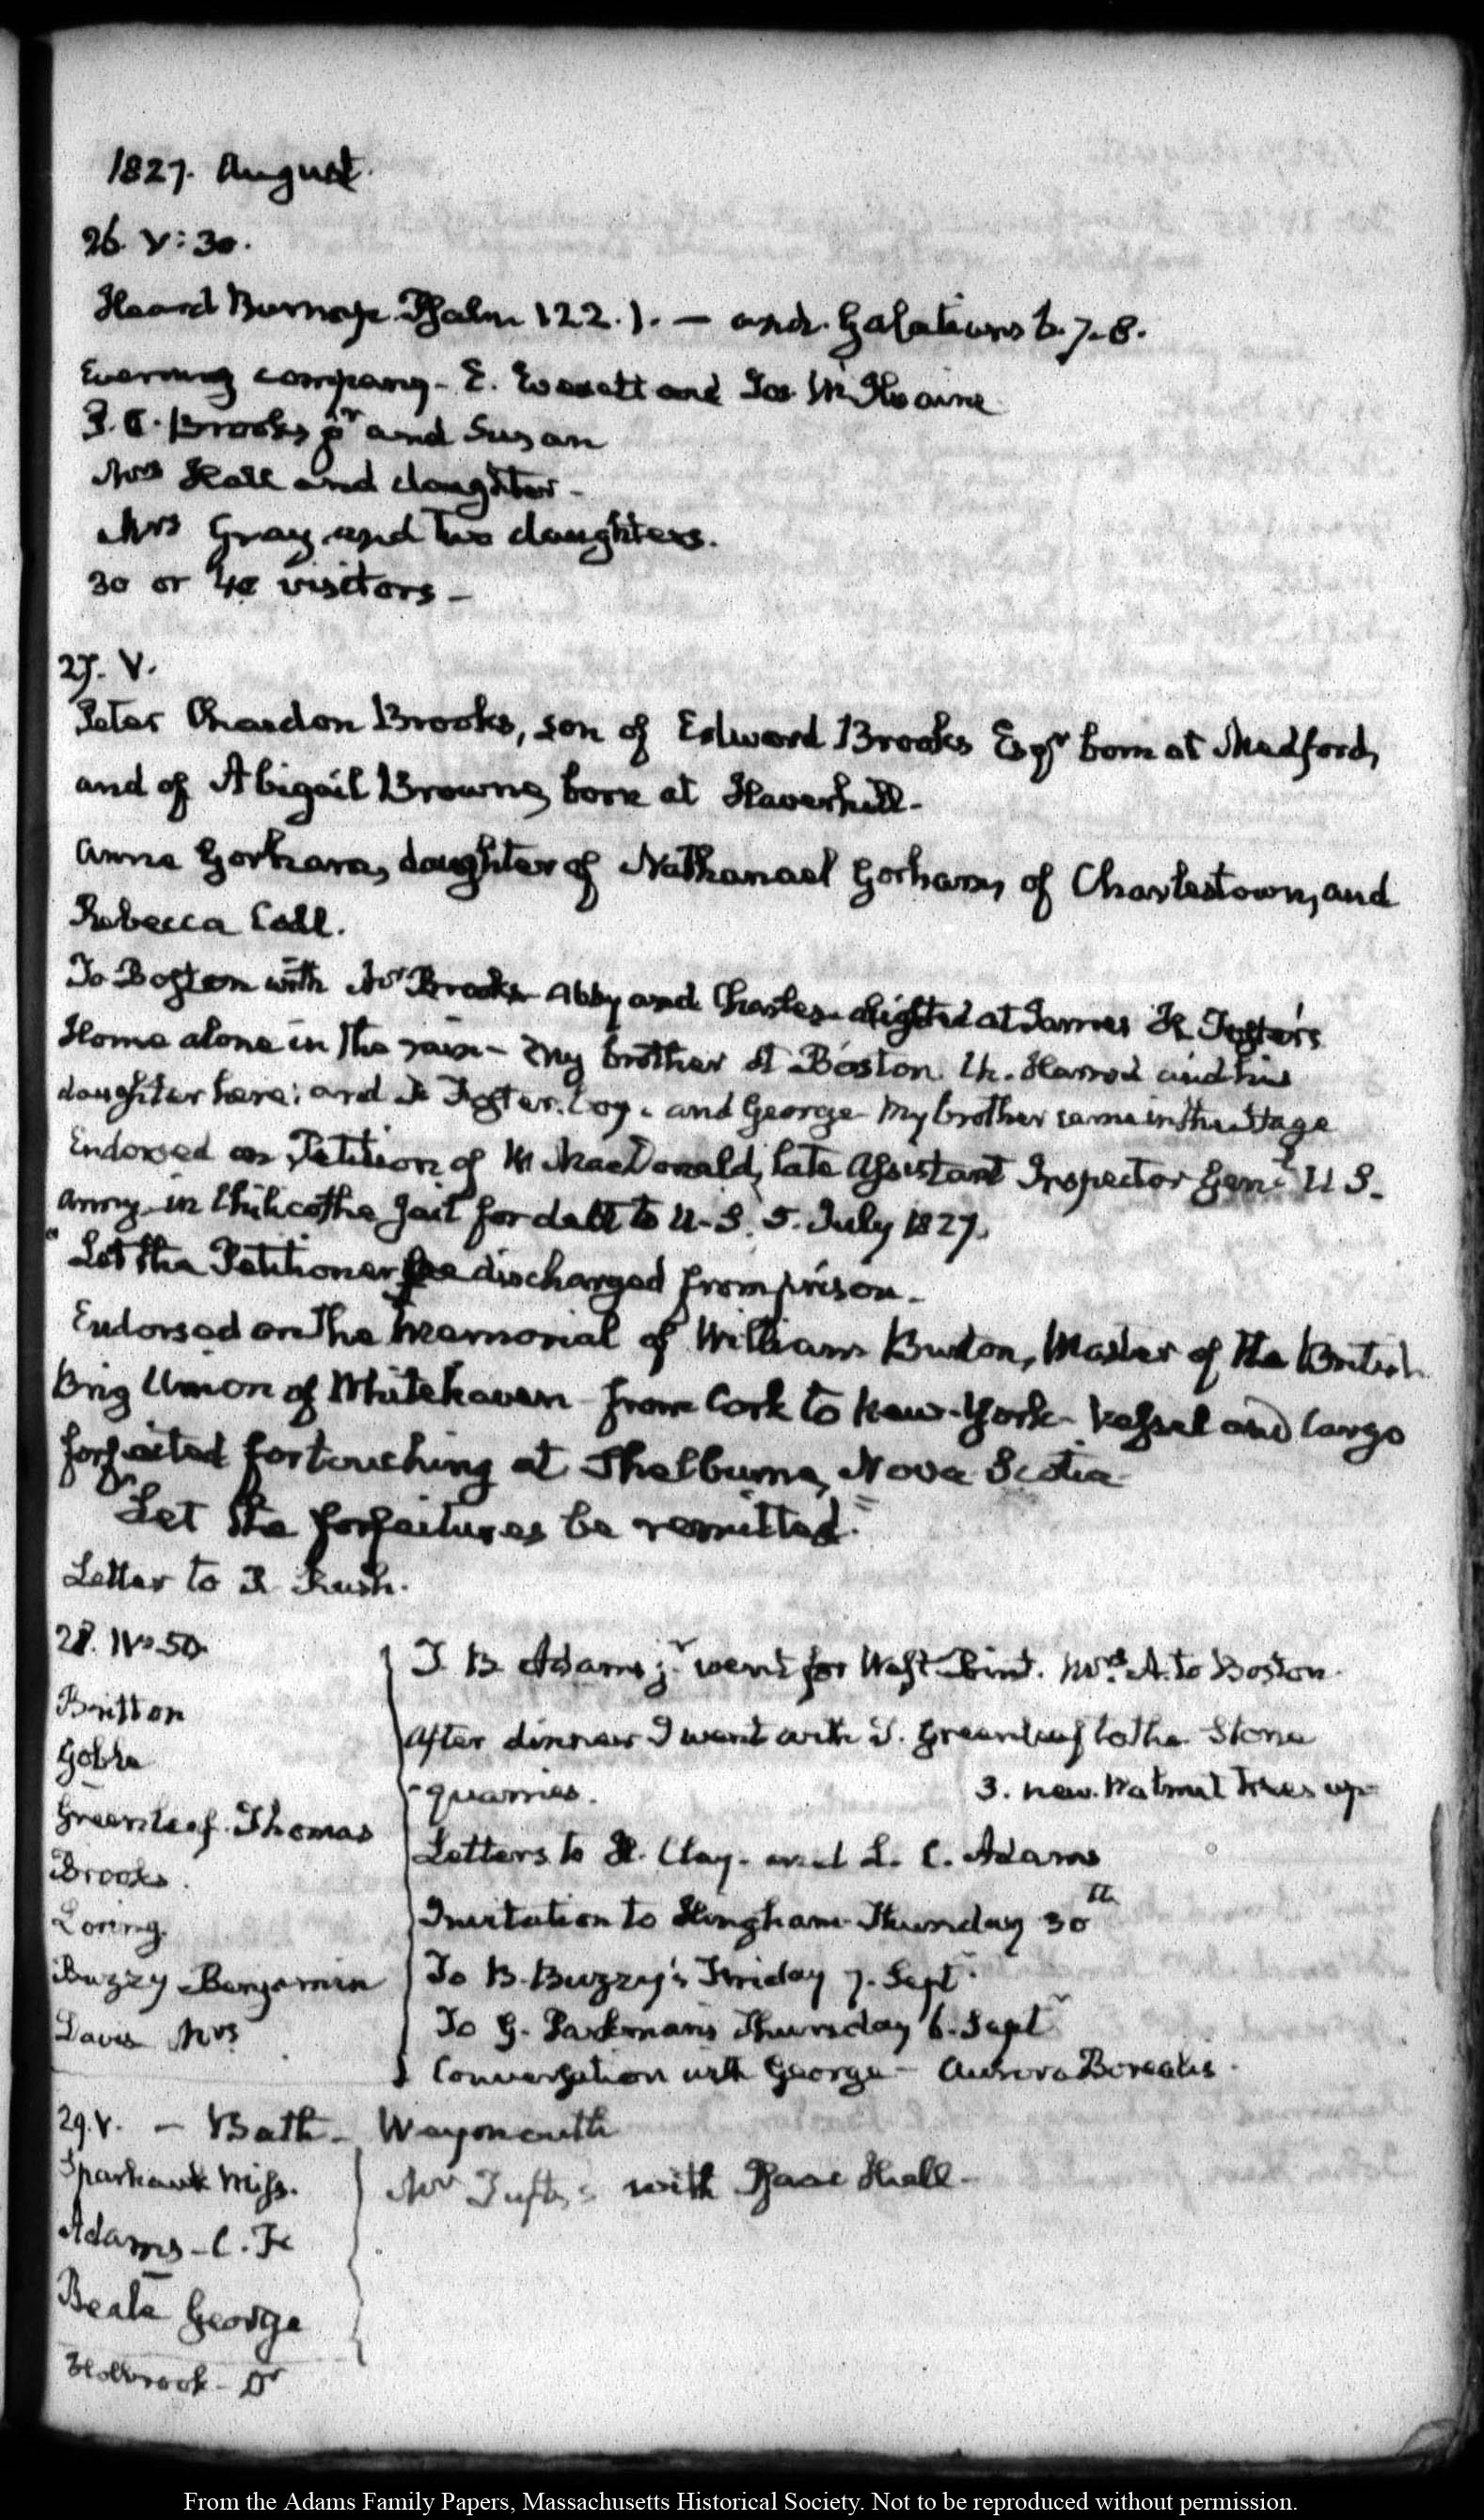 1827. August.
26. V:30.
Heard Burnap. Psalm 122.1. — and Galatians 6. 7-8.
Evening company- E. Everett and Jos. McIlvaine
P. C. Brooks jr and Susan
Mrs Hall and daughter-
Mrs Gray and two daughters.
30 or 40 visitors-
27. V.
Peter Chardon Brooks, son of Edward Brooks Esqr born at Medford,
and of Abigail Browne, born at Haverhill-
Anne Gorham, daughter of Nathanael Gorham, of Charlestown, and
Rebecca Call.
To Boston with Mr Brooks Abby and Charles- alighted at James H. Foster's
Home alone in the rain- My brother at Boston. Ch. Harrod and his
daughter here: and J. Foster. boy. and George- My brother came in the Stage
Endorsed on Petition of MacDonald, late Assistant Inspector Genl U S.
Army in Chilicothe Jail for debt to U.S. 5. July 1827.
"Let the Petitioner be discharged from prison-
Endorsed on the Memorial of William Burton, Master of the British
Brig Union of Whitehaven- from Cork to New-York- Vessel and Cargo
forfeited for touching at Shelburne, Nova Scotia-
"Let the forfeitures be remitted."
Letter to R Rush.
28. IV:50.
Britton
Goble
Greenleaf. Thomas
Brooks.
Loring.
Buzzy Benjamin
Davis Mrs
J. B. Adams jr. went for West Point. Mrs. A. to Boston.
After dinner I went with T. Greenleaf to the Stone
-quarries. 3. new Walnut trees up-
Letters to H. Clay- and L. C. Adams
Invitation to Hingham- Thursday 30th
To B. Buzzy's Friday 7. Septr
To G. Parkman's Thursday 6. Septr
Conversation with George- Aurora Borealis.
29. V. — Bath- Weymouth
Sparhawk Miss.
Adams- C. F.
Beale George
Holbrook- Dr
Mr Tufts: with Hall-
From the Adams Family Papers, Massachusetts Historical Society. Not to be reproduced without permission.